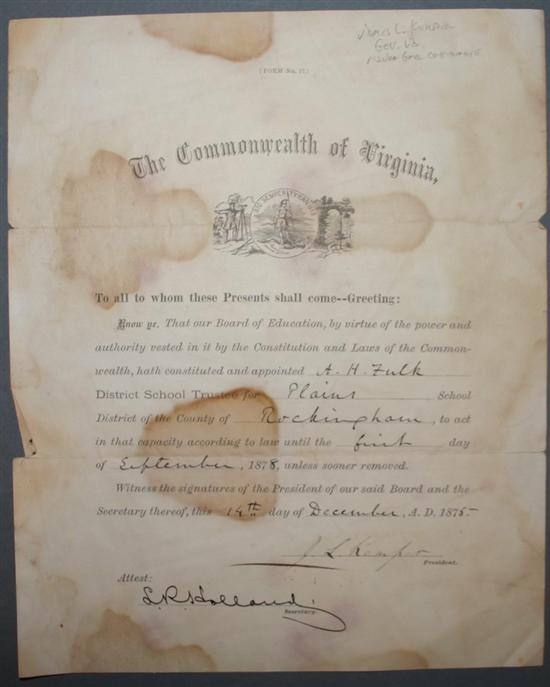 James L. Kemper
Gov. Va.
(FORM No. 17.)
The Commonwealth of Virginia,
To all to whom these Presents shall come--Greeting:
Know ye. That our Board of Education, by virtue of the power and
authority vested in it by the Constitution and Laws of the Common-
wealth, hath constituted and appointed A. H. Fulk
District School Trustee for Plains School
District of the County of Rockingham, to act
in that capacity according to law until the first day
of September, 1878, unless sooner removed.
Witness the signatures of the President of our said Board and the
Secretary thereof, this 14th day of December, A. D. 1875-
J. L. Kemper
President.
Attest:
S. R. Holland
Secretary.